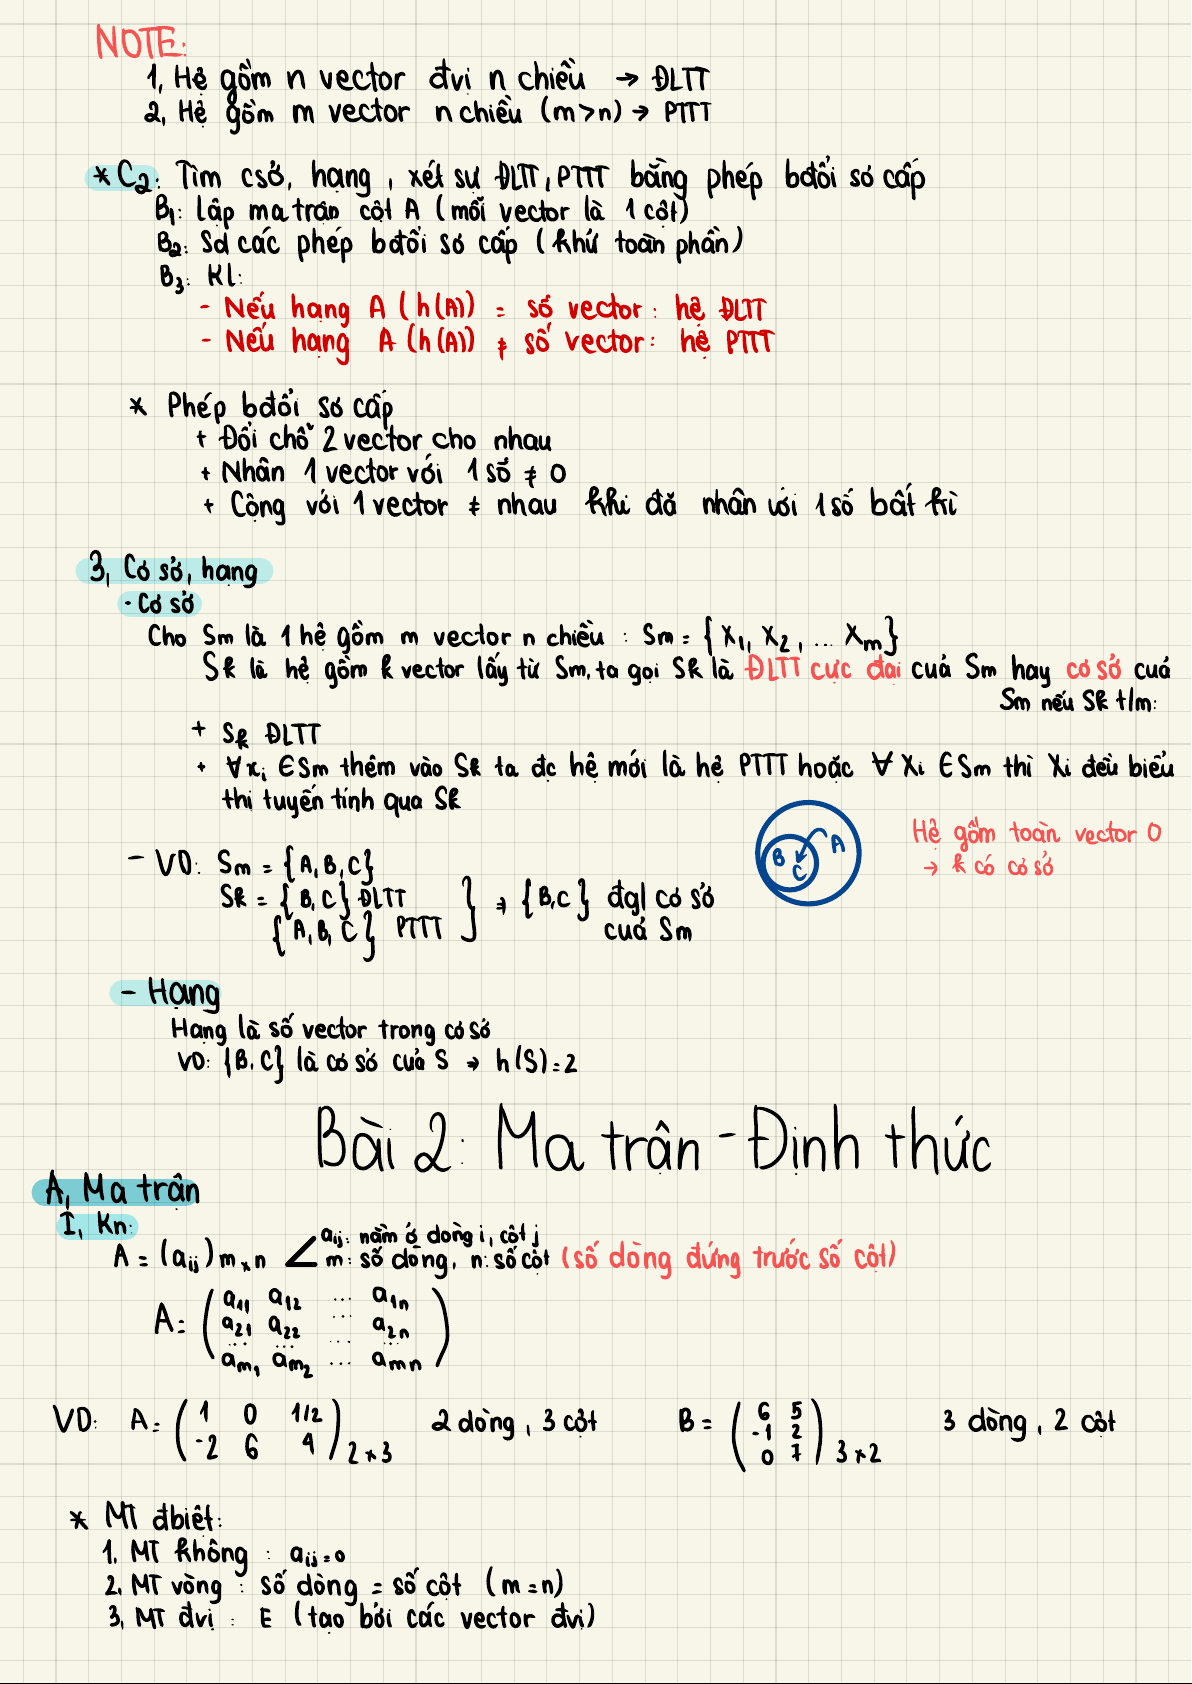 NOTE:
1, Hệ gồm n vector đvị n chiều → ĐLTT
2, Hệ gồm m vector n chiều (m>n) → PTTT
* C2: Tìm csở, hạng, xét sự ĐLTT, PTTT bằng phép bđổi sơ cấp
B1: Lập ma trận cột A (mỗi vector là 1 cột)
B2: Sd các phép bđổi sơ cấp (khử toàn phần)
B3: Kl:
- Nếu hạng A (h(A)) = số vector: hệ ĐLTT
- Nếu hạng A (h(A)) ≠ số vector: hệ PTTT
* Phép bđổi sơ cấp
+ Đổi chỗ 2 vector cho nhau
+ Nhân 1 vector với 1 số ≠ 0
+ Cộng với 1 vector ≠ nhau khi đã nhân với 1 số bất kì
3, Cơ sở, hạng
· Cơ sở
Cho Sm là 1 hệ gồm m vector n chiều : Sm = {X1, X2, ... Xm}
Sk là hệ gồm k vector lấy từ Sm, ta gọi Sk là ĐLTT cực đại của Sm hay cơ sở của
Sm nếu Sk t/m:
+ Sk ĐLTT
+ ∀xi ∈ Sm thêm vào Sk ta đc hệ mới là hệ PTTT hoặc ∀ Xi ∈ Sm thì Xi đều biểu
thị tuyến tính qua Sk
B C A
Hệ gồm toàn vector 0
→ k có cơ sở
- VD: Sm = {A, B, C}
Sk = {B, C} ĐLTT
{A, B, C} PTTT
} ⇒ {B, C} đgl cơ sở
của Sm
- Hạng
Hạng là số vector trong cơ sở
VD: {B, C} là cơ sở của S ⇒ h(S) = 2
Bài 2: Ma trận - Định thức
A, Ma trận
I, Kn:
A = (aij) m×n ∠ aij: nằm ở dòng i, cột j
m: số dòng, n: số cột (số dòng đứng trước số cột)
A = ( a11 a12 ... a1n
a21 a22 ... a2n
... ... ... ...
am1 am2 ... amn )
VD: A = ( 1 0 1/2
-2 6 4 ) 2×3
2 dòng, 3 cột
B = ( 6 5
-1 2
0 7 ) 3×2
3 dòng, 2 cột
* MT đbiệt:
1. MT không : aij = 0
2. MT vòng : số dòng = số cột (m = n)
3, MT đvị : E (tạo bởi các vector đvị)